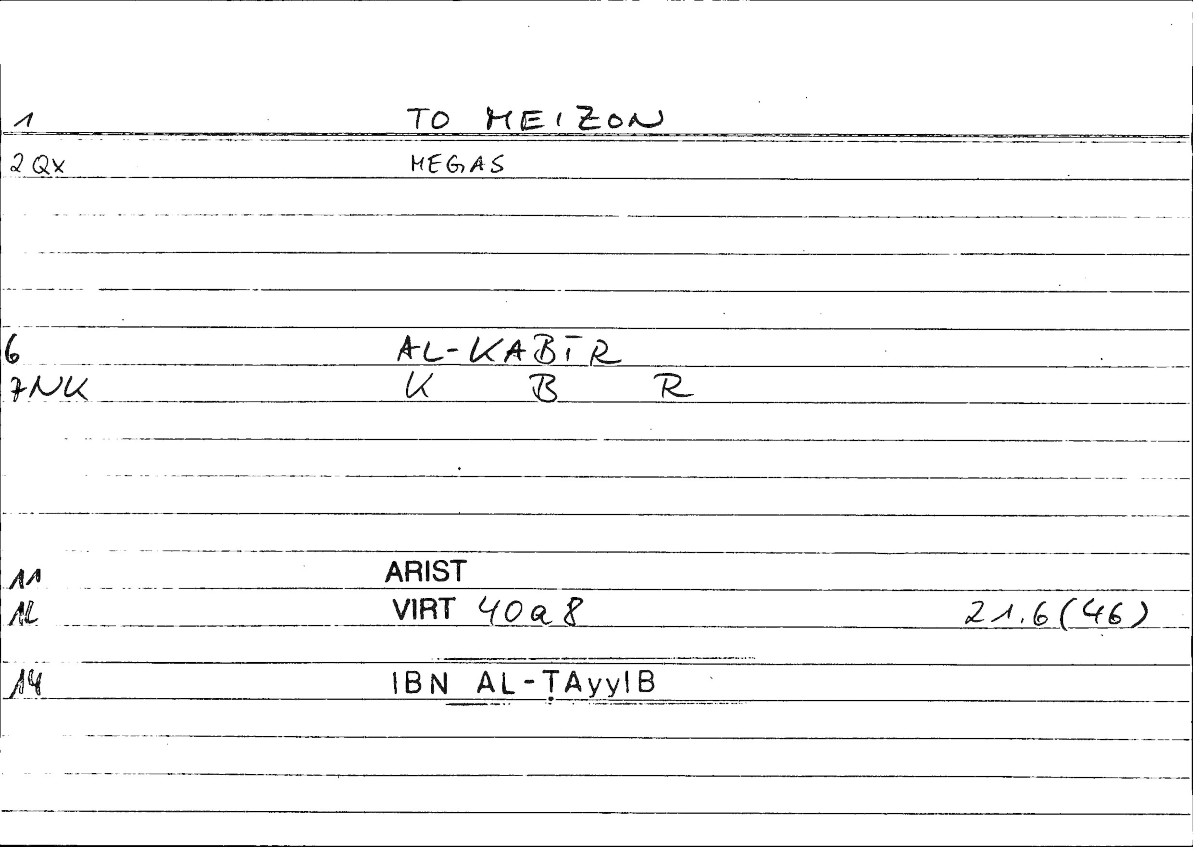 1 TO MEIZON
2 QX MEGAS
6 AL-KABĪR
7 NK K B R
11 ARIST
12 VIRT 40a8 21.6(46)
14 IBN AL-ṬAyyIB